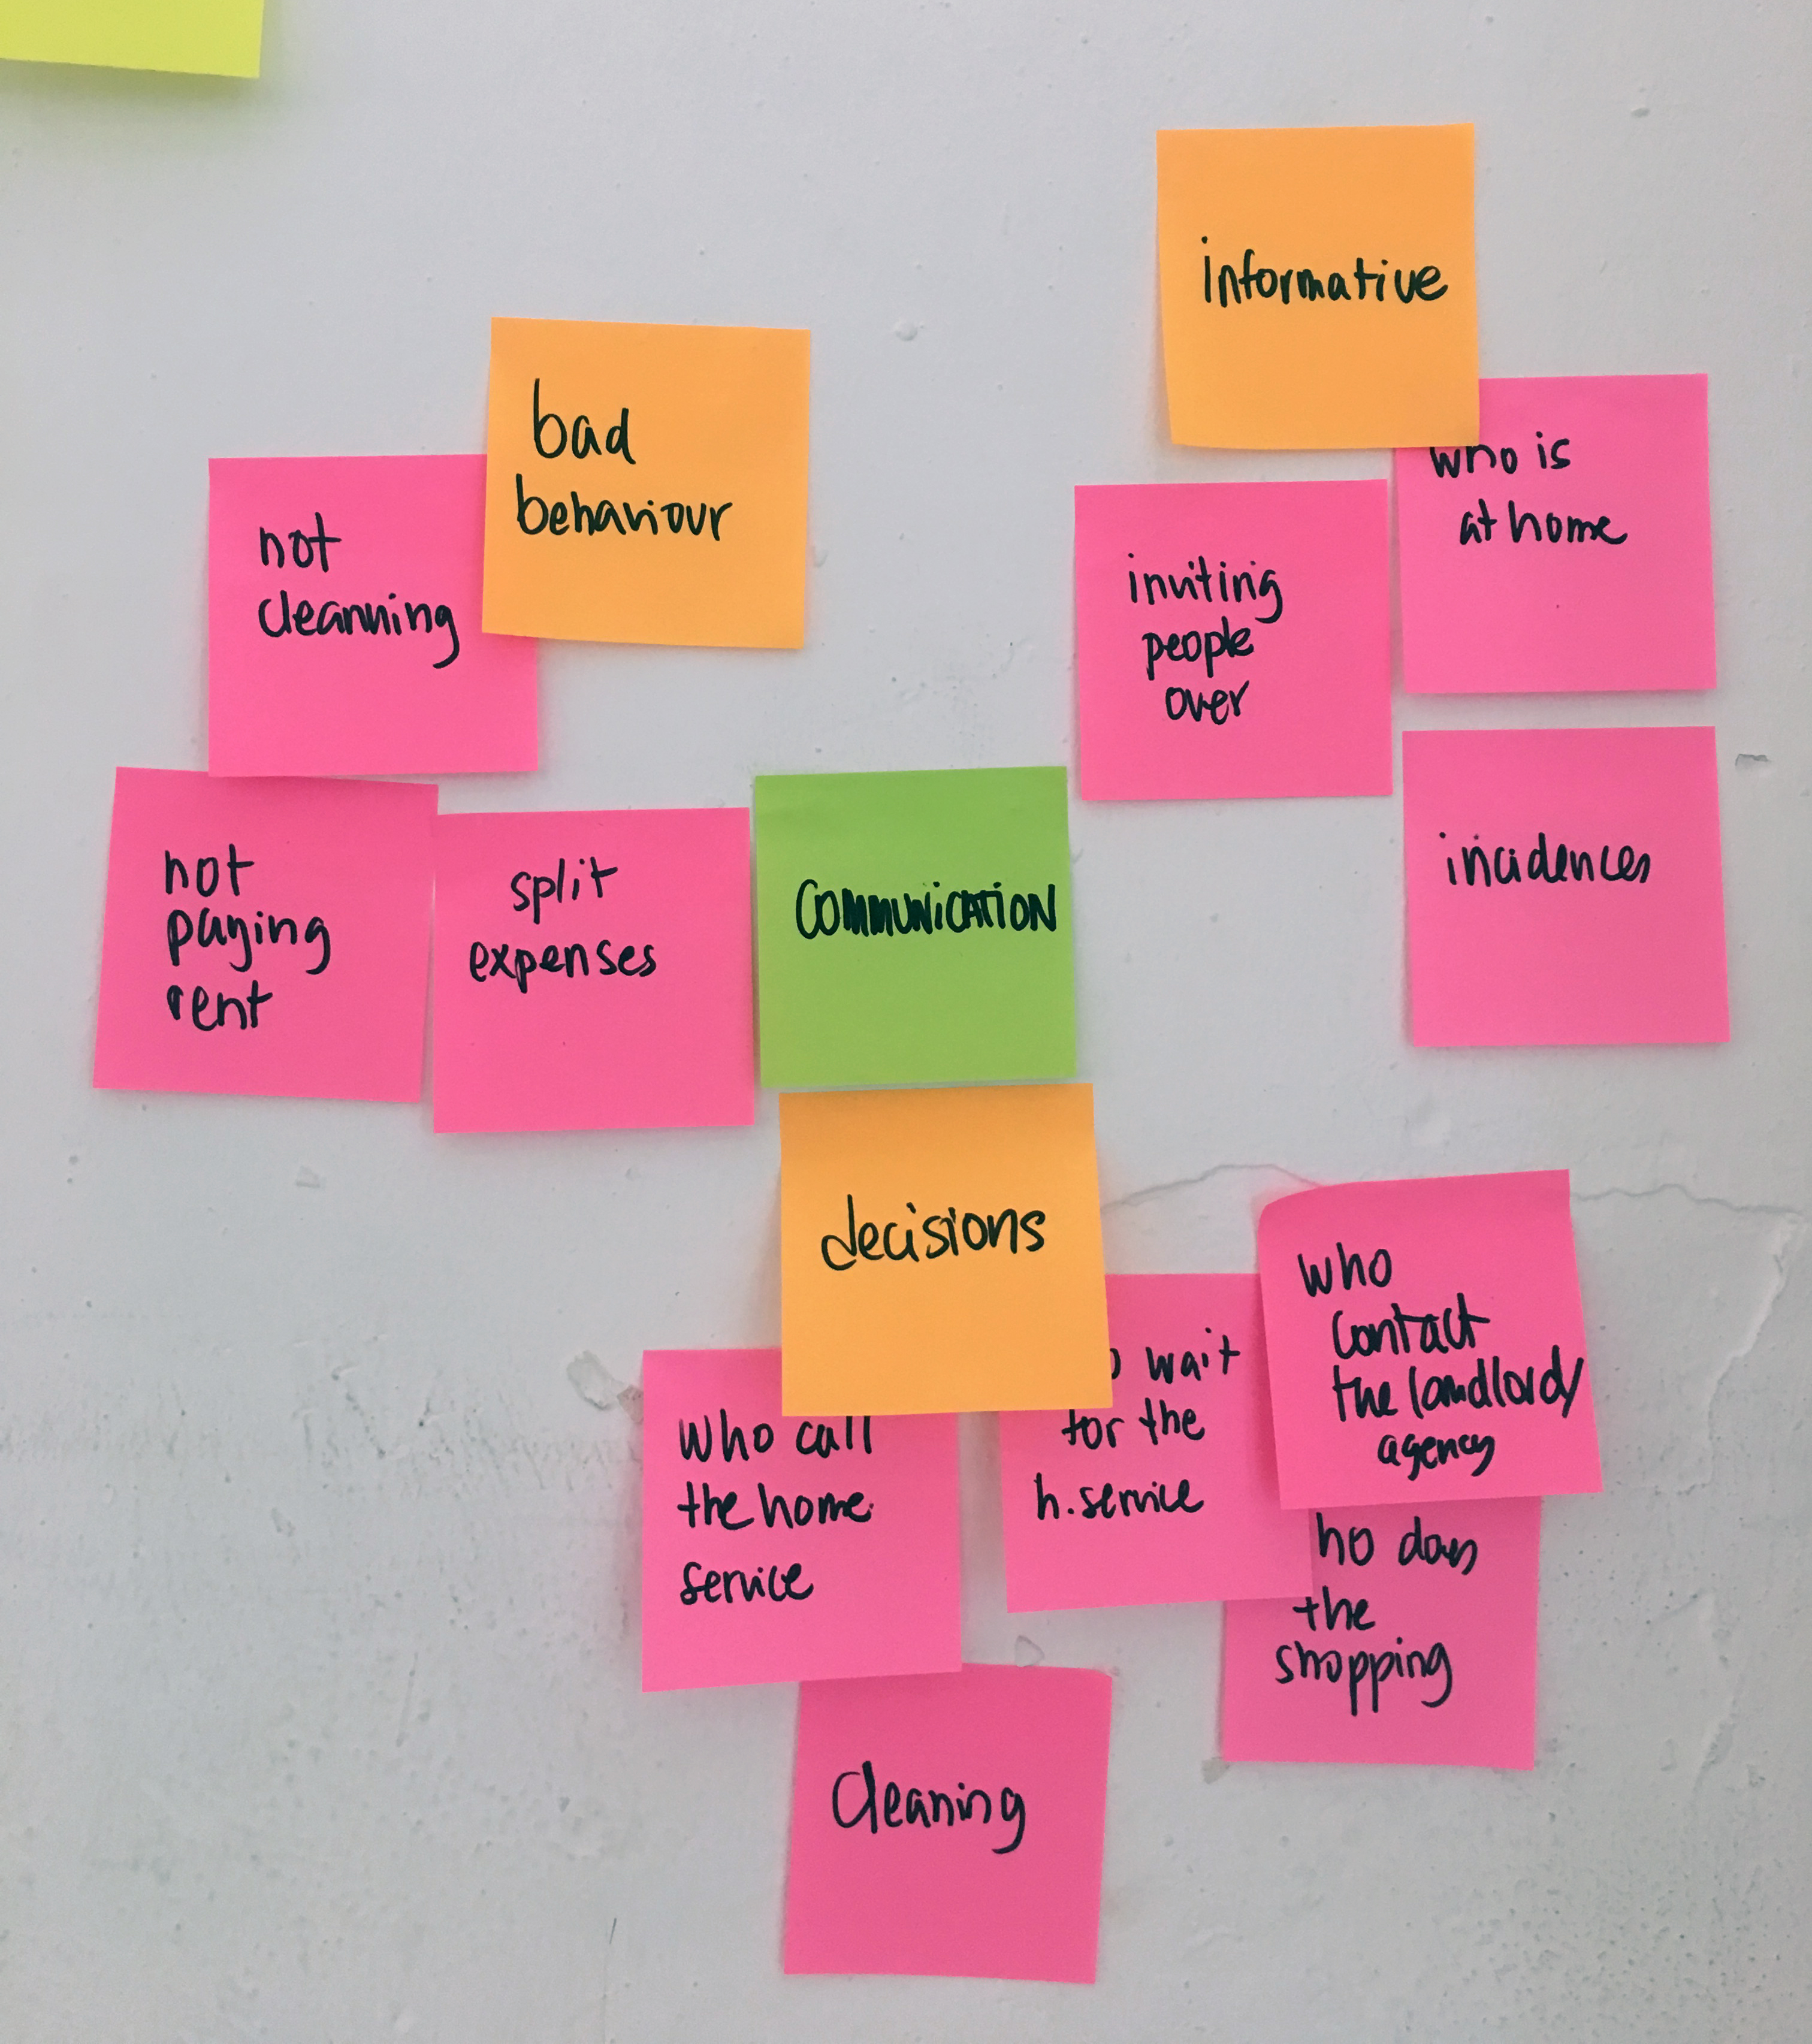 informative
bad
behaviour
who is
at home
not
cleanning
inviting
people
over
not
paying
rent
split
expenses
COMMUNICATION
incidences
decisions
who
contact
the landlord/
agency
wait
for the
h. service
who call
the home
service
the
shopping
Cleaning